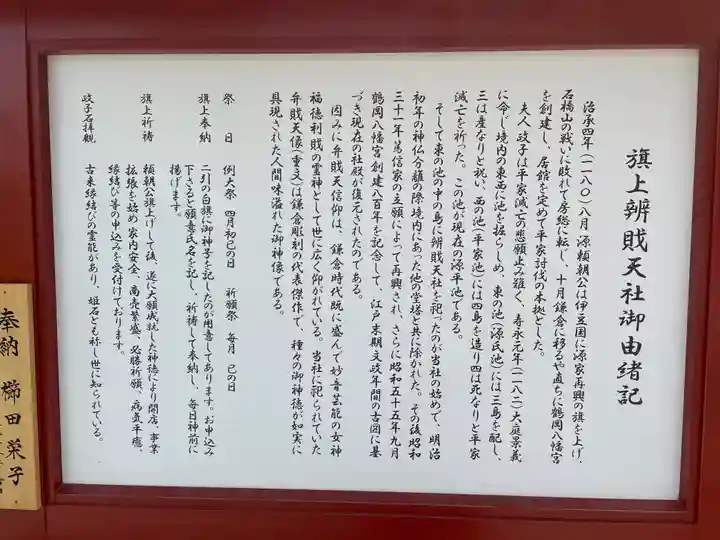 旗上辨財天社御由緒記
治承四年(一一八〇)八月 源頼朝公は伊豆国に源家再興の旗を上げ、
石橋山の戦いに敗れて房総に転し、十月鎌倉に移るや直ちに鶴岡八幡宮
を創建し、居館を定めて平家討伐の本拠とした。
夫人 政子は平家滅亡の悲願止み難く、寿永元年(一一八二)大庭景義
に命じ境内の東西に池を掘らしめ、東の池(源氏池)には三島を配し、
三は産なりと祝い、西の池(平家池)には四島を造り四は死なりと平家
滅亡を祈った。この池が現在の源平池である。
そして東の池の中の島に辨財天社を祀ったのが当社の始めで、明治
初年の神仏分離の際境内にあった他の堂塔と共に除かれた。その後昭和
三十一年篤信家の立願によって再興され、さらに昭和五十五年九月
鶴岡八幡宮創建八百年を記念して、江戸末期文政年間の古図に基
づき現在の社殿が復元されたのである。
因みに弁財天信仰は、鎌倉時代既に盛んで妙音芸能の女神
福徳利財の霊神として世に広く仰がれている。当社に祀られていた
弁財天像(重文)は鎌倉彫刻の代表傑作で、種々の御神徳が如実に
具現された人間味溢れた御神像である。
祭 日 例大祭 四月初巳の日 祈願祭 毎月 巳の日
旗上奉納 二引の白旗に御神号を記したのが用意してあります。お申込み
下さると願意氏名を記し、祈祷して奉納し、毎日神前に
揚げます。
旗上祈祷 頼朝公旗上げして後、遂に大願成就した神徳により開店、事業
拡張を始め家内安全、商売繁盛、必勝祈願、病気平癒、
縁結び等の申込みを受付けております。
政子石拝観 古来縁結びの霊能があり、姫石とも称し世に知られている。
奉納 櫛田菜子